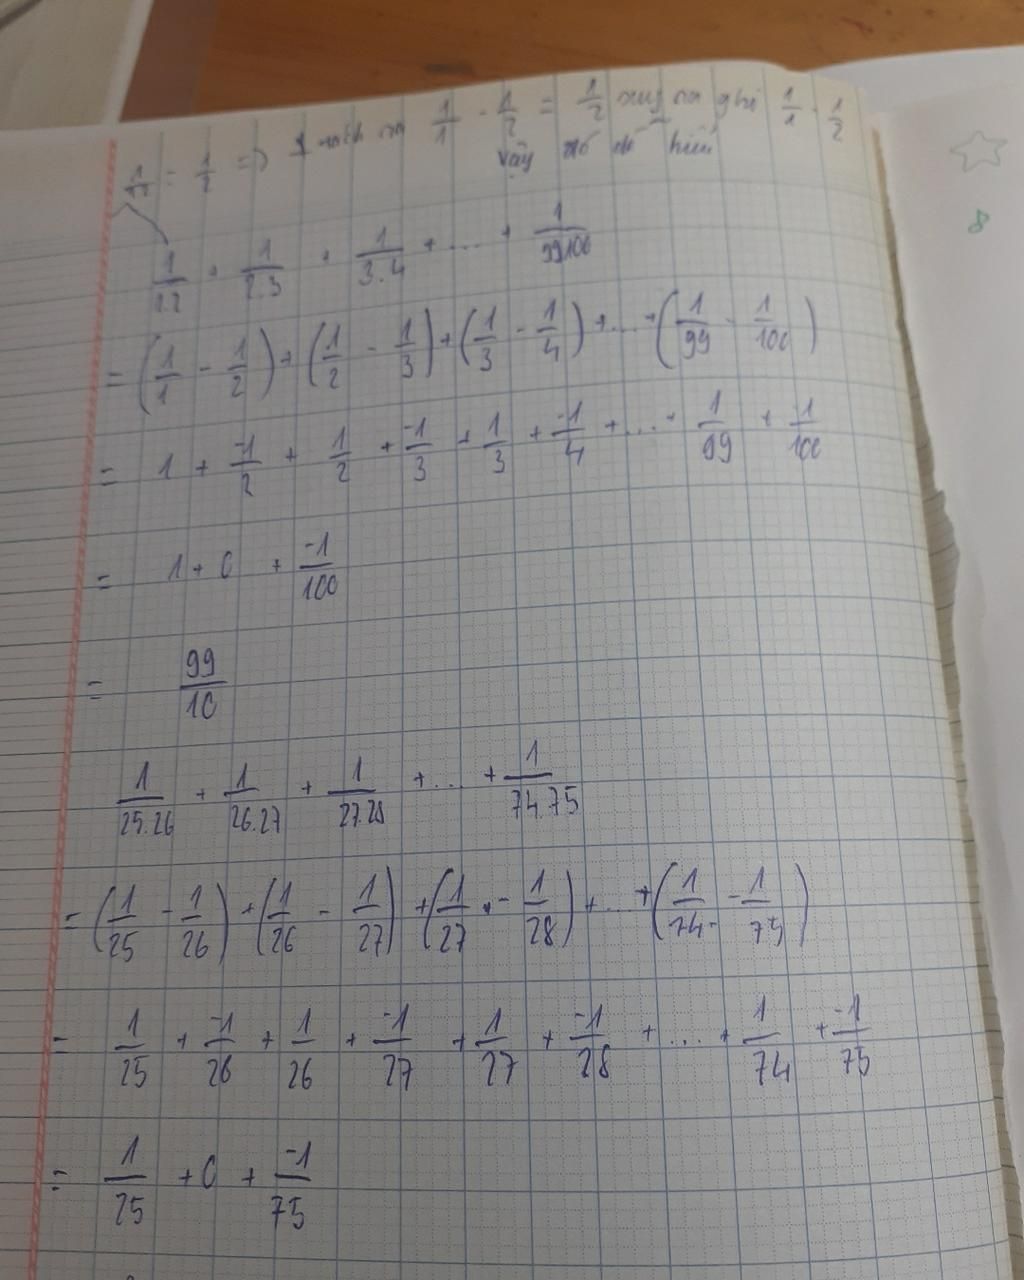 = 1/2 => 1/1 - 1/2 = 1/2 ghi 1/1 - 1/2
vậy
1/1.2 + 1/2.3 + 1/3.4 + ... + 1/99.100
= (1/1 - 1/2) + (1/2 - 1/3) + (1/3 - 1/4) + ... + (1/99 - 1/100)
= 1 + -1/2 + 1/2 + -1/3 + 1/3 + -1/4 + ... + 1/99 + -1/100
= 1 + 0 + -1/100
= 99/10
1/25.26 + 1/26.27 + 1/27.28 + ... + 1/74.75
= (1/25 - 1/26) + (1/26 - 1/27) + (1/27 - 1/28) + ... + (1/74 - 1/75)
= 1/25 + -1/26 + 1/26 + -1/27 + 1/27 + -1/28 + ... + 1/74 + -1/75
= 1/25 + 0 + -1/75
8